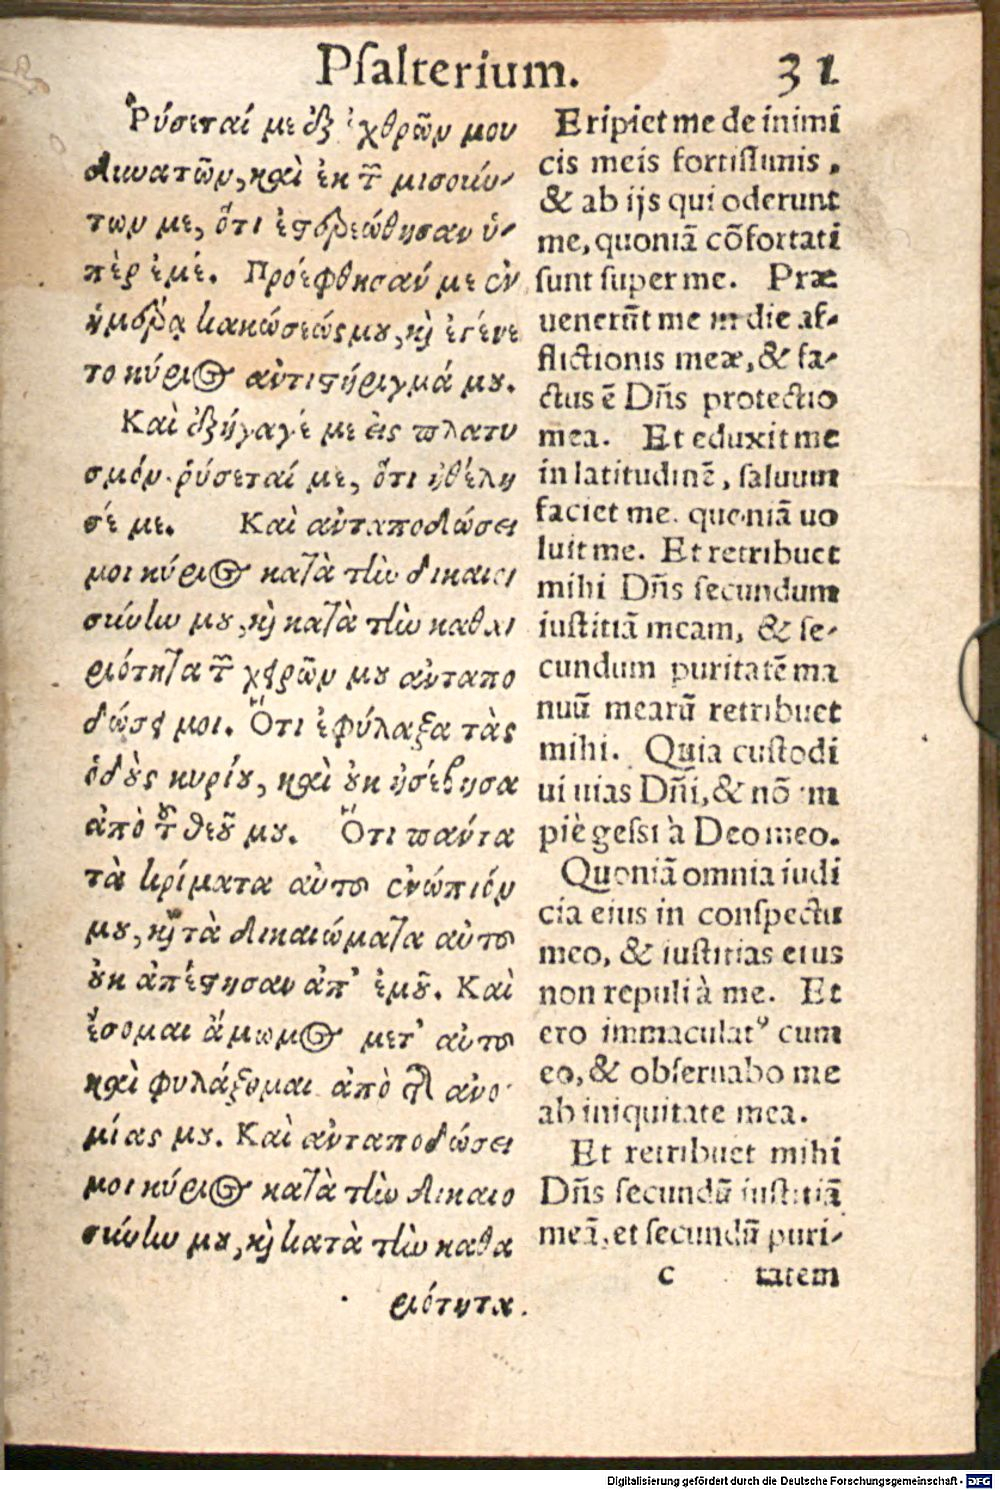 Psalterium. 31
Ῥύσεταί με ἐξ ἐχθρῶν μου
δυνατῶν, καὶ ἐκ τῶν μισούν-
των με, ὅτι ἐστερεώθησαν ὑ-
πὲρ ἐμέ. Προέφθησαν με ἐν
ἡμέρᾳ κακώσεώς μου, καὶ ἐγένε
το κύριος αντιστήριγμά μου.
Καὶ ἐξήγαγέ με εἰς πλατυ
σμόν. ῥύσεταί με, ὅτι ἠθέλη
σέ με. Καὶ αὐταποδώσει
μοι κύριος κατὰ τὴν δικαιο
σύνην μου, καὶ κατὰ τὴν καθα
ριότητα τῶν χειρῶν μου ἀνταπο
δώσει μοι. Ὅτι ἐφύλαξα τὰς
ὁδοὺς κυρίου, καὶ οὐκ ἠσέβησα
ἀπὸ τοῦ θεοῦ μου. Ὅτι πάντα
τὰ κρίματα αὐτοῦ ἐνώπιόν
μου, καὶ τὰ δικαιώματα αὐτοῦ
οὐκ ἀπέστησαν ἀπ' ἐμοῦ. Καὶ
ἔσομαι ἄμωμος μετ' αὐτοῦ
καὶ φυλάξομαι ἀπὸ τῆς ανο
μίας μου. Καὶ ἀνταποδώσει
μοι κύριος κατὰ τὴν δικαιο
σύνην μου, καὶ κατὰ τὴν καθα
ριότητα.
Eripiet me de inimi
cis meis fortissimis,
& ab ijs qui oderunt
me, quoniā cōfortati
sunt super me. Præ
uenerūt me in die af-
flictionis meæ, & fa-
ctus ē Dn̄s protectio
mea. Et eduxit me
in latitudinē, saluum
faciet me. quoniā uo
luit me. Et retribuet
mihi Dn̄s secundum
iustitiā meam, & se-
cundum puritatē ma
nuū mearū retribuet
mihi. Quia custodi
ui uias Dn̄i, & nō im
piè gessi à Deo meo.
Quoniā omnia iudi
cia eius in conspectu
meo, & iustitias eius
non repuli à me. Et
ero immaculatꝰ cum
eo, & obseruabo me
ab iniquitate mea.
Et retribuet mihi
Dn̄s secundū iustitiā
meā, et secundū puri-
c tatem
Digitalisierung gefördert durch die Deutsche Forschungsgemeinschaft - DFG